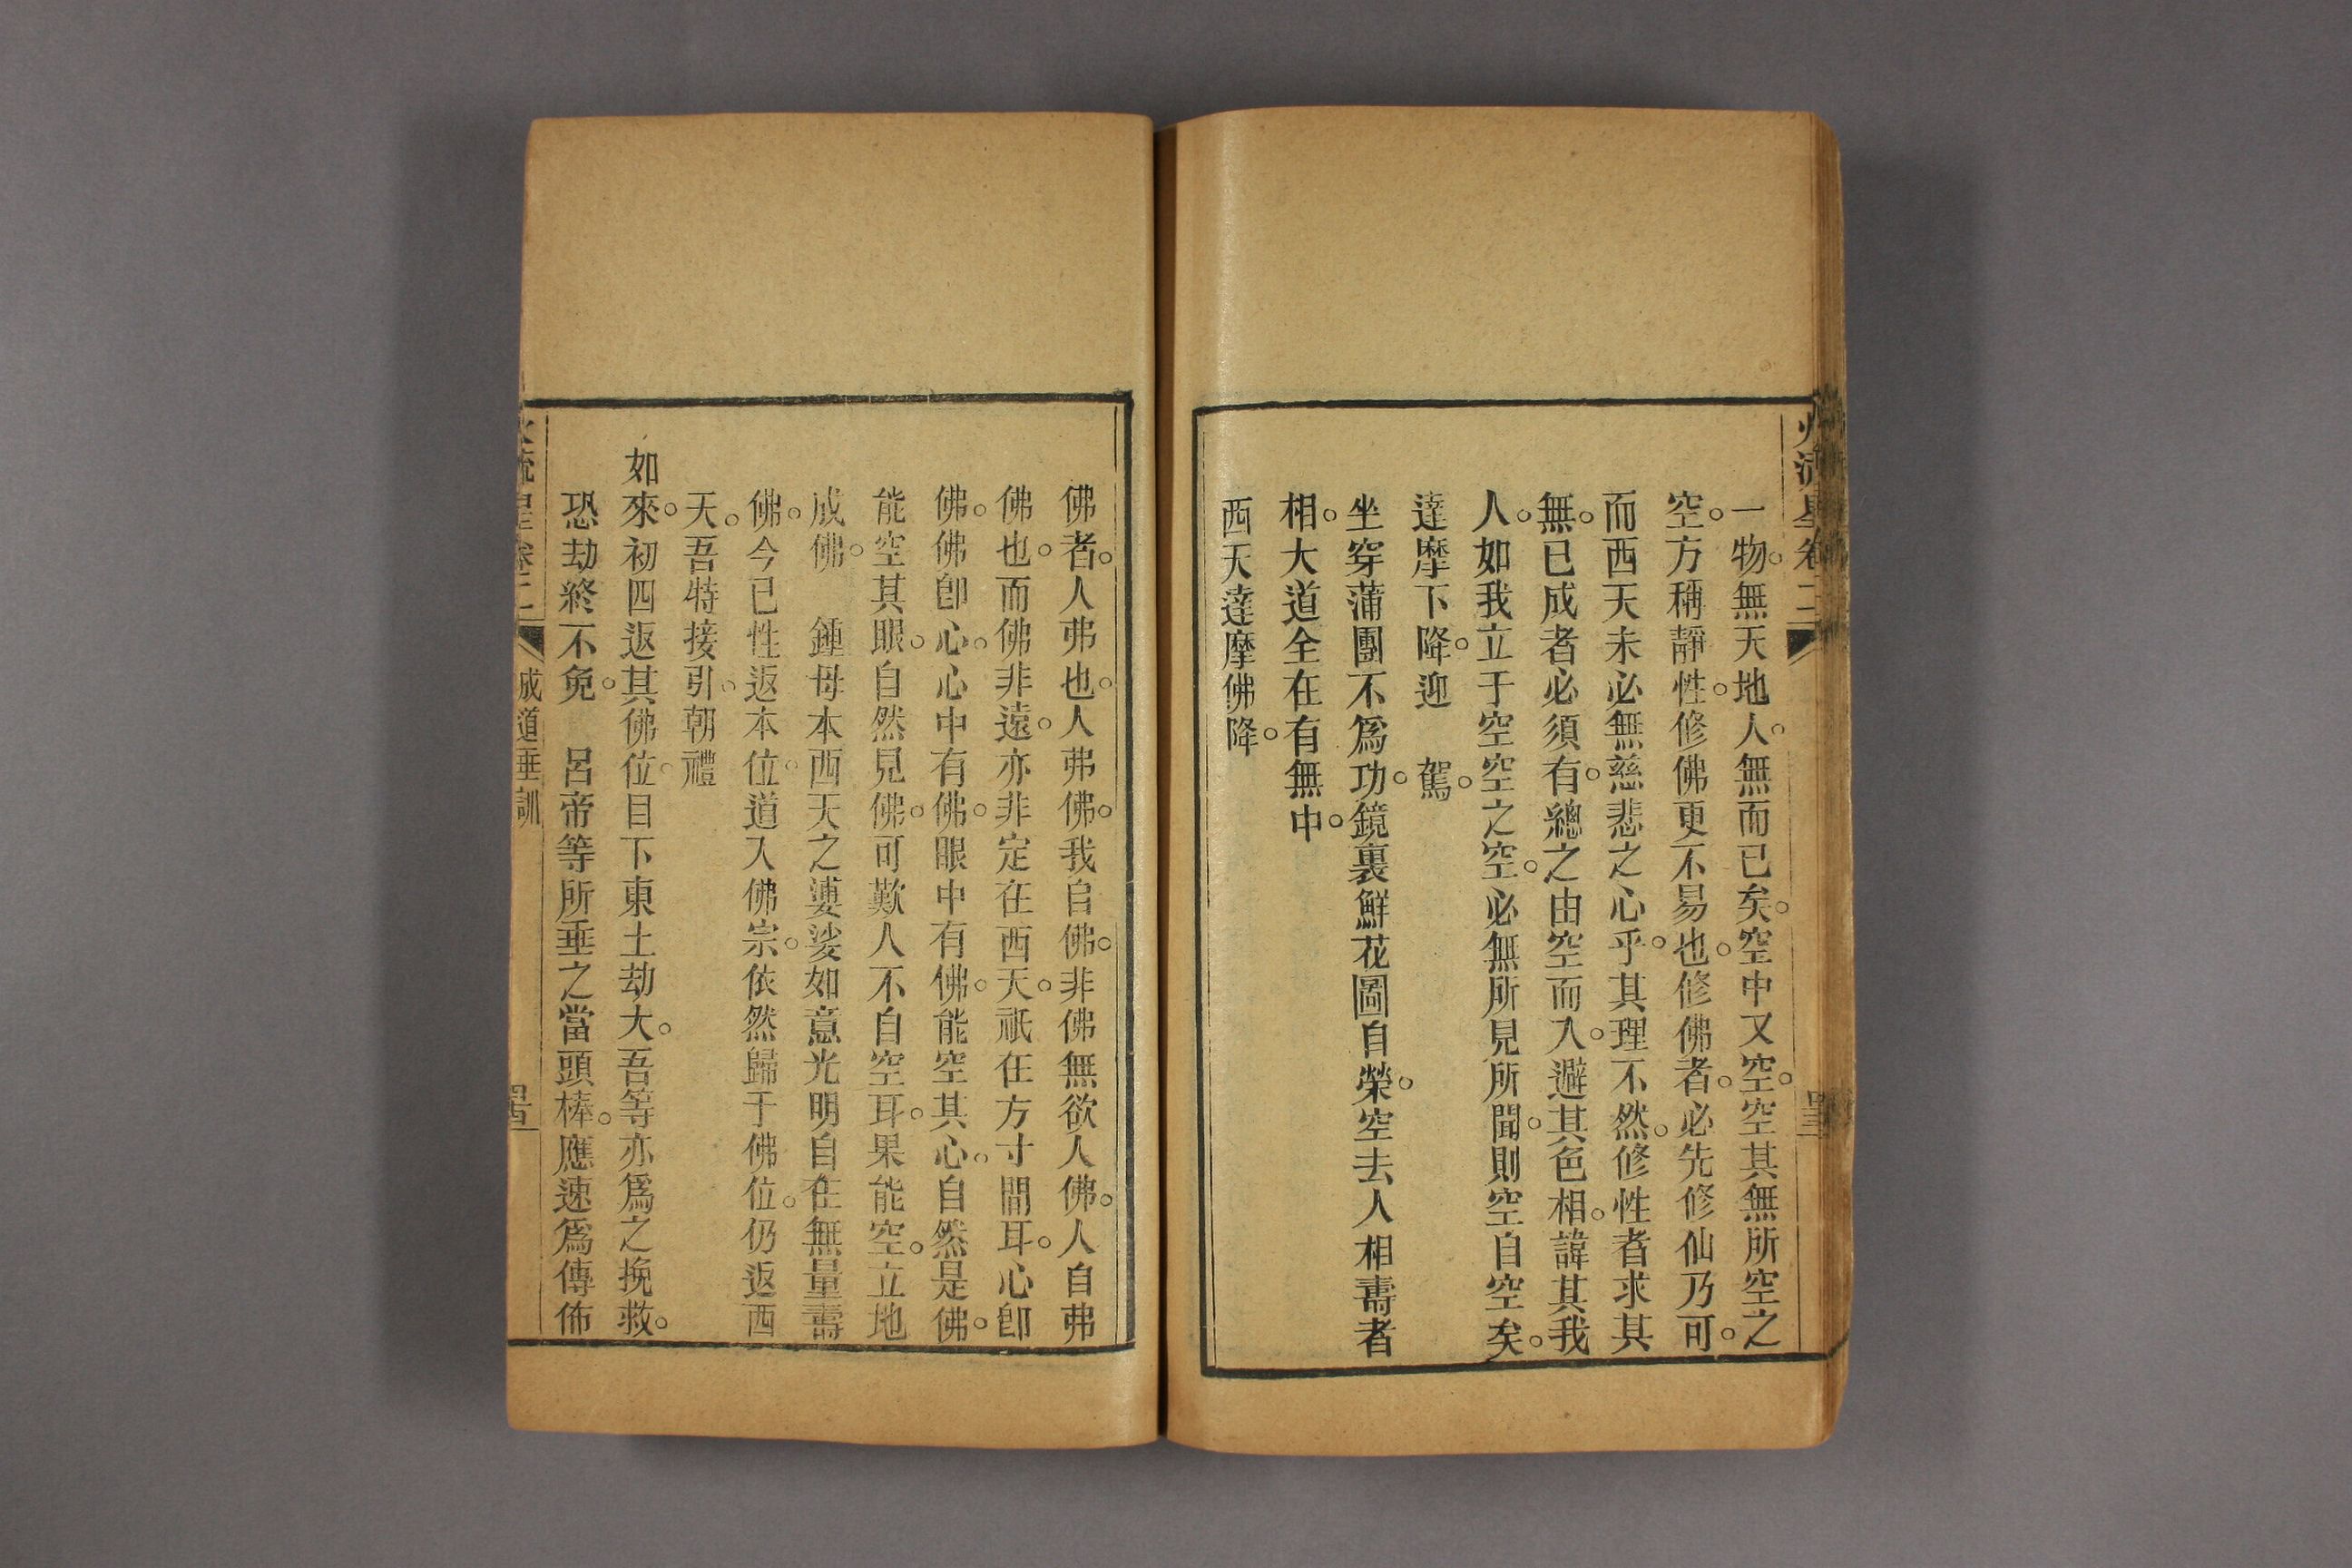 一物。無天地人。無而已矣。空中又空。空其無所空之
空。方稱靜性。修佛更不易也。修佛者。必先修仙乃可。
而西天未必無慈悲之心乎。其理不然。修性者求其
無。已成者必須有。總之由空而入。避其色相。諱其我
人。如我立于空空之空。必無所見所聞。則空自空矣。
達摩下降。迎　駕。
坐穿蒲團不爲功。鏡裏鮮花圖自榮。空去人相壽者
相。大道全在有無中。
西天達摩佛降。
佛者。人弗也。人弗佛。我自佛。非佛無欲人佛。人自弗
佛也。而佛非遠。亦非定在西天。祇在方寸間耳。心卽
佛。佛卽心。心中有佛。眼中有佛。能空其心。自然是佛。
能空其眼。自然見佛。可歎人不自空耳。果能空。立地
成佛。　鍾母本西天之婁娑如意光明自在無量壽
佛。今已性返本位。道入佛宗。依然歸于佛位。仍返西
天。吾特接引。朝禮
如來。初四返其佛位。目下東土劫大。吾等亦爲之挽救。
恐劫終不免。　呂帝等所垂之當頭棒。應速爲傳佈
成道垂訓